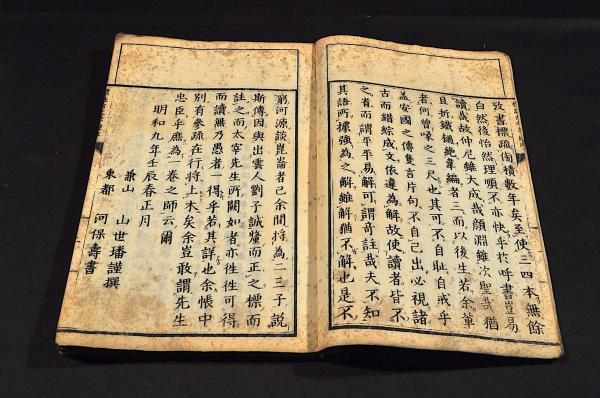 攷書標疏衡積數年矣至使三四本無餘
白然後怡然理順不亦快乎於呼書豈易
讀哉故仲尼雖大成哉顔淵雖次聖哉猶
且折鐵檛絶韋編者三而以後生若余輩
者何曾啄之三尺也其可不自耻自戒乎
蓋安國之傳隻言片句不自己出必視諸
古而錯綜成文依違為解故使讀者皆不
之省而謂平平易解可謂哥註哉夫不知
其語所標強為之解雖解猶不解也是不
窮河源談崑崙者已余間将為二三子説
斯傳因與出雲人劉子誠釐而正之標而
註之而太宰先生所闕如者亦徃徃可得
而讀無乃愚者一得乎若其詳也余帳中
別有參疏在行将上木矣余豈敢謂先生
忠臣乎庶為一卷之師云爾
明和九年壬辰春正月
兼山 山世璠謹撰
東都 河保壽書